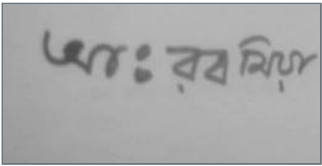 আঃ রব মিয়া